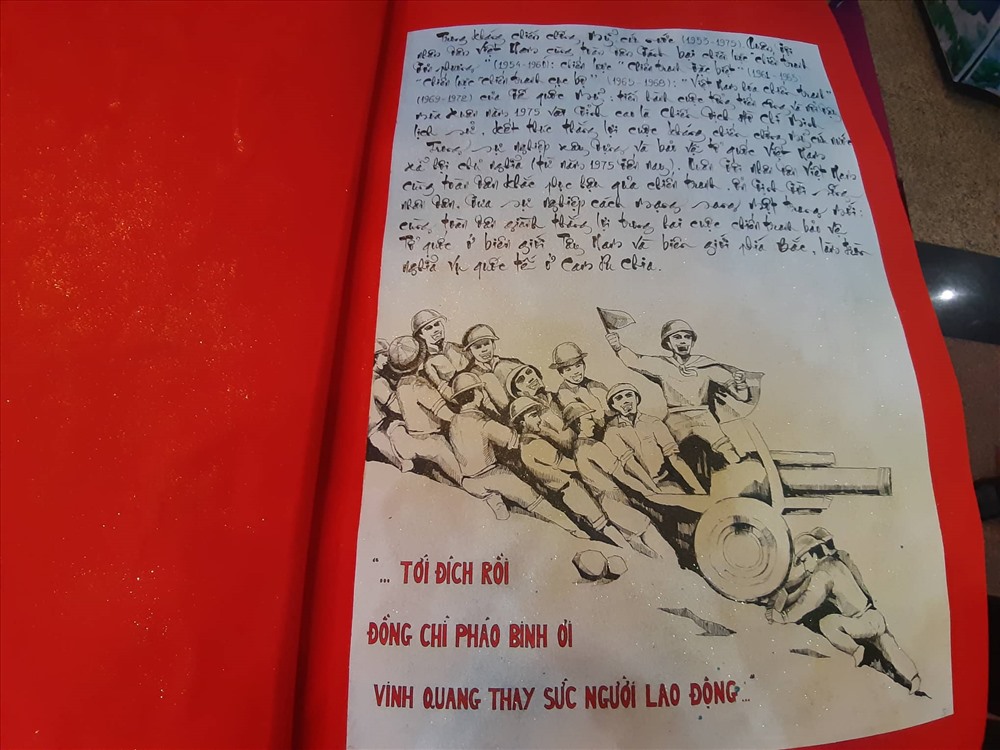 Trong kháng chiến chống Mỹ cứu nước (1955-1975). Quân đội
nhân dân Việt Nam cùng toàn dân đánh bại chiến lược "chiến tranh
đơn phương" (1954-1960); chiến lược "Chiến tranh đặc biệt" (1961-1965
"Chiến lược chiến tranh cục bộ" (1965-1968); "Việt Nam hóa chiến tranh"
(1969-1972) của đế quốc Mỹ; tiến hành cuộc tổng tiến công và nổi dậy
mùa xuân năm 1975 với đỉnh cao là Chiến dịch Hồ Chí Minh
lịch sử, kết thúc thắng lợi cuộc kháng chiến chống Mỹ cứu nước
Trong sự nghiệp xây dựng và bảo vệ tổ quốc Việt Nam
xã hội chủ nghĩa (từ năm 1975 đến nay). Quân đội nhân dân Việt Nam
cùng toàn dân khắc phục hậu quả chiến tranh, ổn định đời sống
nhân dân. Đưa sự nghiệp cách mạng sang một trang mới;
cùng toàn dân giành thắng lợi trong hai cuộc chiến tranh bảo vệ
Tổ quốc ở biên giới Tây Nam và biên giới phía Bắc, làm tròn
nghĩa vụ quốc tế ở Cam Pu Chia.
"... TỚI ĐÍCH RỒI
ĐỒNG CHÍ PHÁO BINH ƠI
VINH QUANG THAY SỨC NGƯỜI LAO ĐỘNG..."